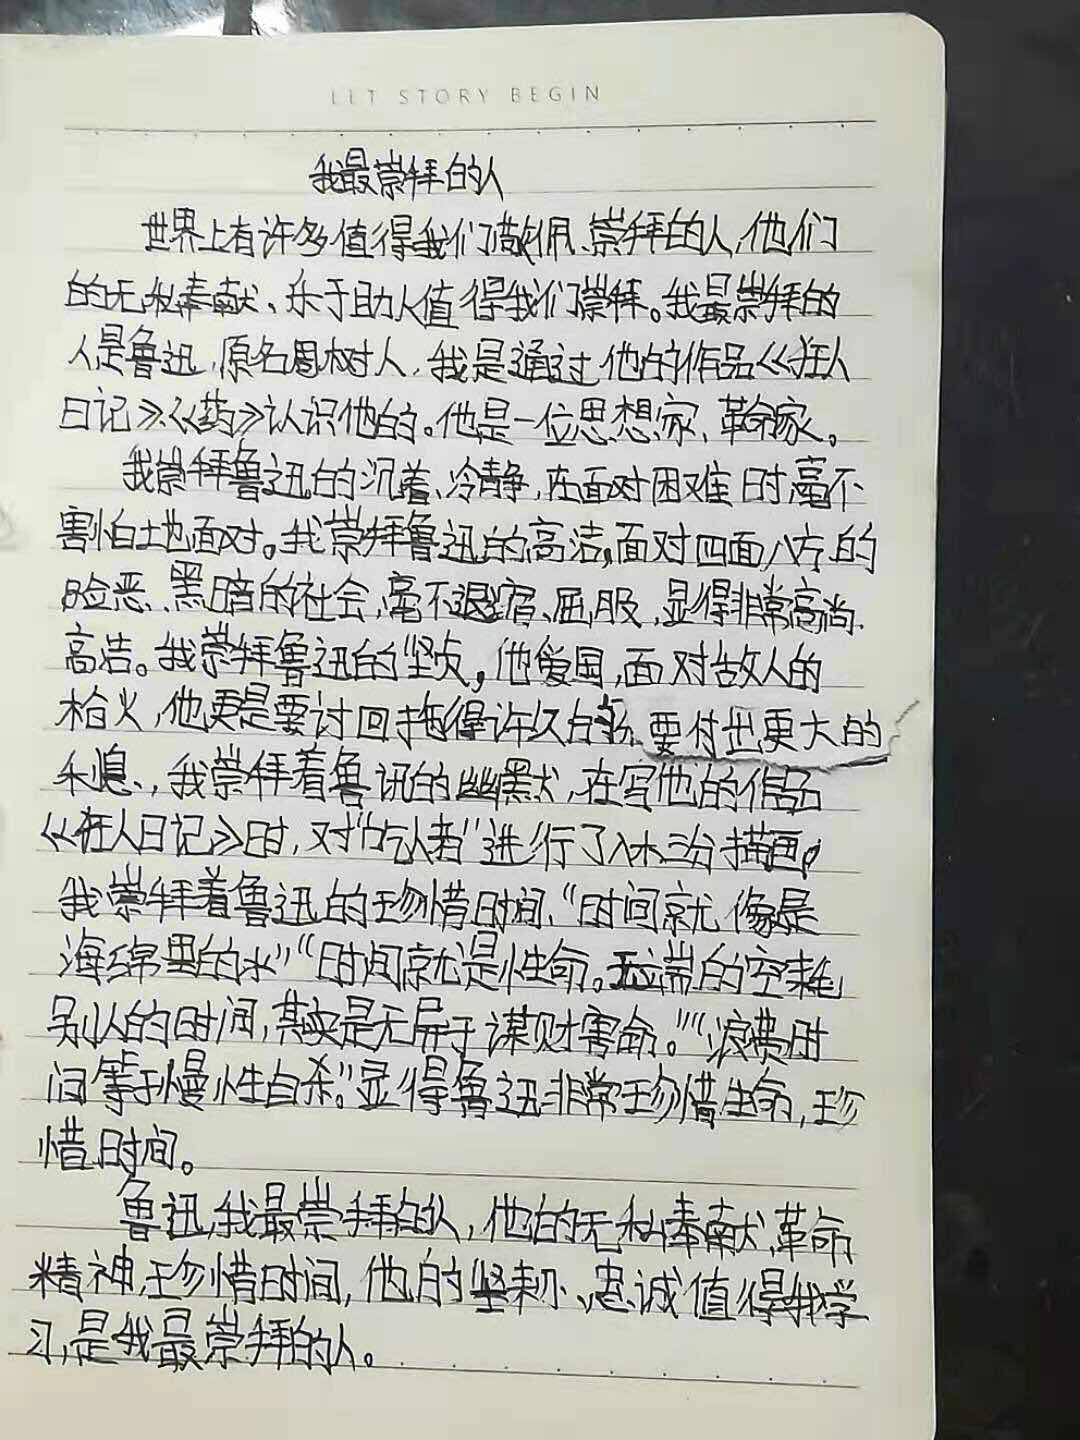 LET STORY BEGIN
我最崇拜的人
世界上有许多值得我们敬佩、崇拜的人,他们
的无私奉献、乐于助人值得我们崇拜。我最崇拜的
人是鲁迅,原名周树人,我是通过他的作品《狂人
日记》、《药》认识他的。他是一位思想家、革命家。
我崇拜鲁迅的沉着、冷静,在面对困难时毫不
害怕土地面对。我崇拜鲁迅的高洁,面对四面八方的
险恶、黑暗的社会,毫不退缩、屈服,显得非常高尚、
高洁。我崇拜鲁迅的坚贞,他爱国,面对敌人的
枪火,他更是要讨回拖得许久的 要付出更大的
利息,我崇拜着鲁讯的幽默,在写他的作品
《狂人日记》时,对“吃人者”进行了入木三分描画,
我崇拜着鲁迅的珍惜时间、“时间就像是
海绵里的水”“时间就是性命。无端的空耗
别人的时间,其实是无异于谋财害命。”“浪费时
间等于慢性自杀。”显得鲁迅非常珍惜生命,珍
惜时间。
鲁迅,我最崇拜的人,他的无私奉献,革命
精神,珍惜时间,他的坚 、忠诚值得我学
习,是我最崇拜的人。